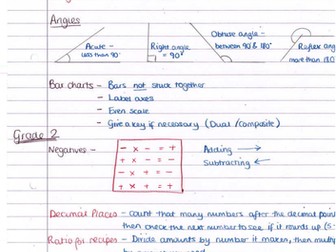 Angles
Acute - less than 90°
Right angle = 90°
Obtuse angle - between 90° & 180°
Reflex angle more than 180
Bar charts - Bars not stuck together
- Label axes
- Even scale
- Give a key if necessary (Dual / composite)
Grade 2
Negatives -
- × - = +
+ × - = -
- × + = -
+ × + = +
Adding →
Subtracting ←
Decimal Places - Count that many numbers after the decimal poin
then check the next number to see if it rounds up (
Ratio for recipes - Divide amounts by number it makes, then